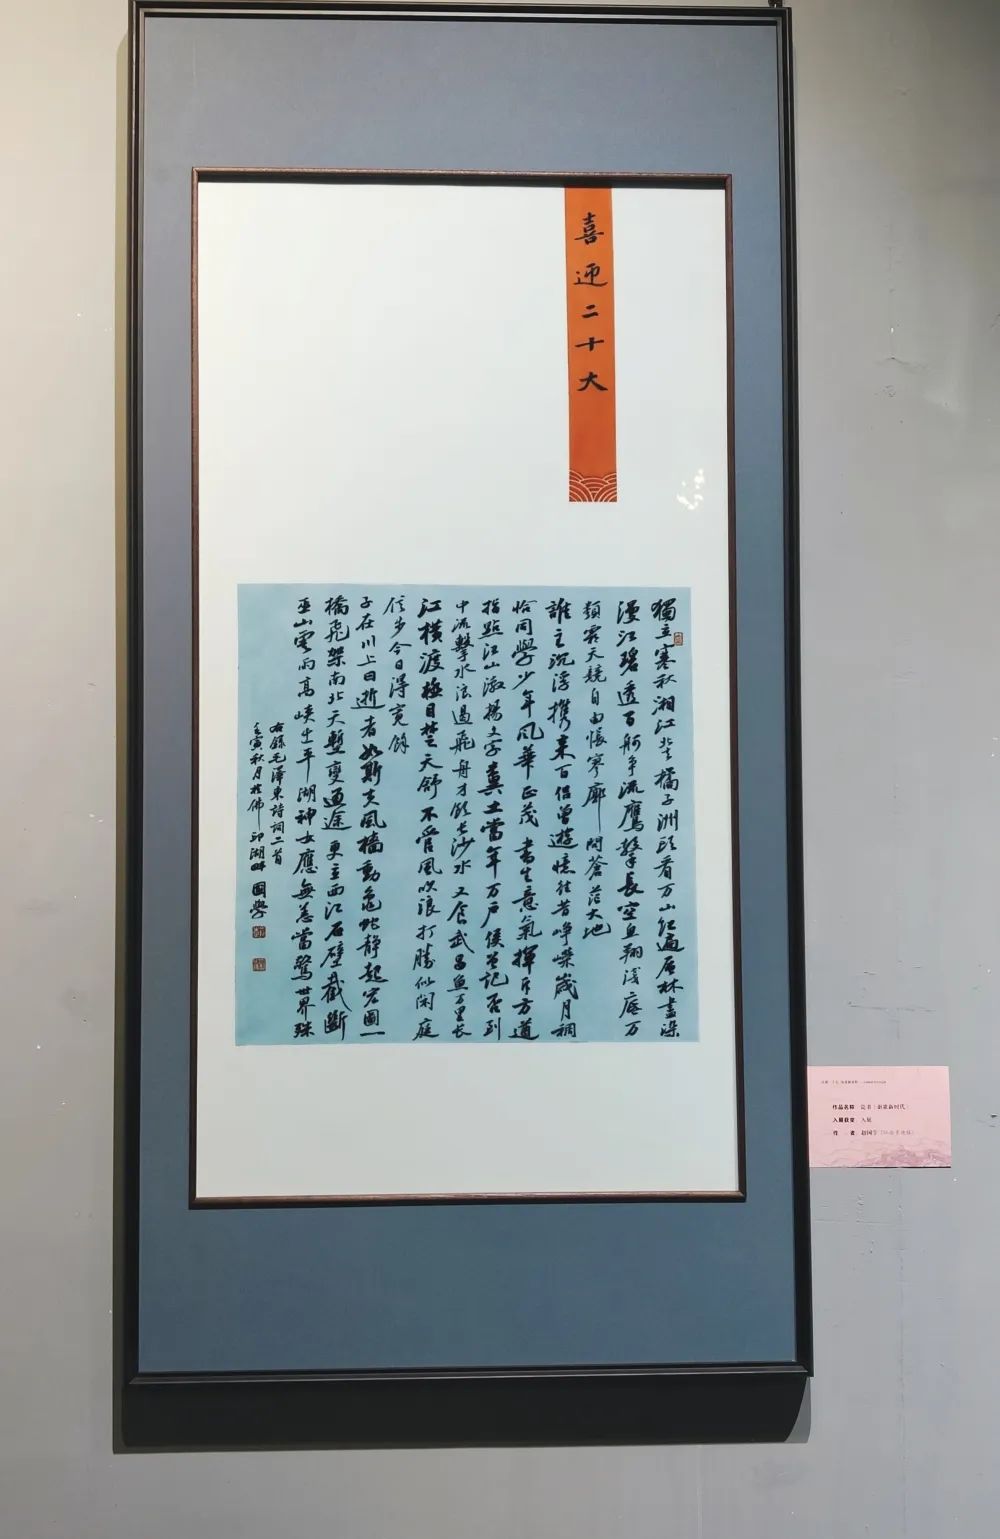 喜迎二十大
獨立寒秋湘江北去橘子洲頭看万山紅遍層林盡染
漫江碧透百舸爭流鷹擊長空魚翔淺底万
類霜天競自由悵寥廓問蒼茫大地
誰主沉浮攜來百侶曾遊憶往昔崢嶸歲月稠
恰同學少年風華正茂書生意氣揮斥方遒
指點江山激揚文字糞土當年万戶侯曾記否到
中流擊水浪遏飛舟才飲長沙水又食武昌魚万里長
江橫渡極目楚天舒不管風吹浪打勝似閑庭
信步今日得寬餘
子在川上曰逝者如斯夫風檣動龜蛇靜起宏圖一
橋飛架南北天塹變通途更立西江石壁截斷
巫山雲雨高峽出平湖神女應無恙當驚世界殊
右錄毛澤東詩詞二首
壬寅秋月於佛印湖畔國學
作品名称
入展获奖 入展
作 者 赵国学